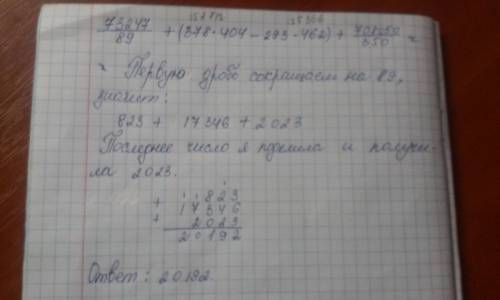 152712 135366
73247/89 + (378·404 − 293·462) + 708050/350 =
= Первую дробь сокращаем на 89,
значит:
823 + 17346 + 2023
Последнее число я поделила и получи-
ла 2023.
+ 823
+ 17346
2023
20192
Ответ: 20192